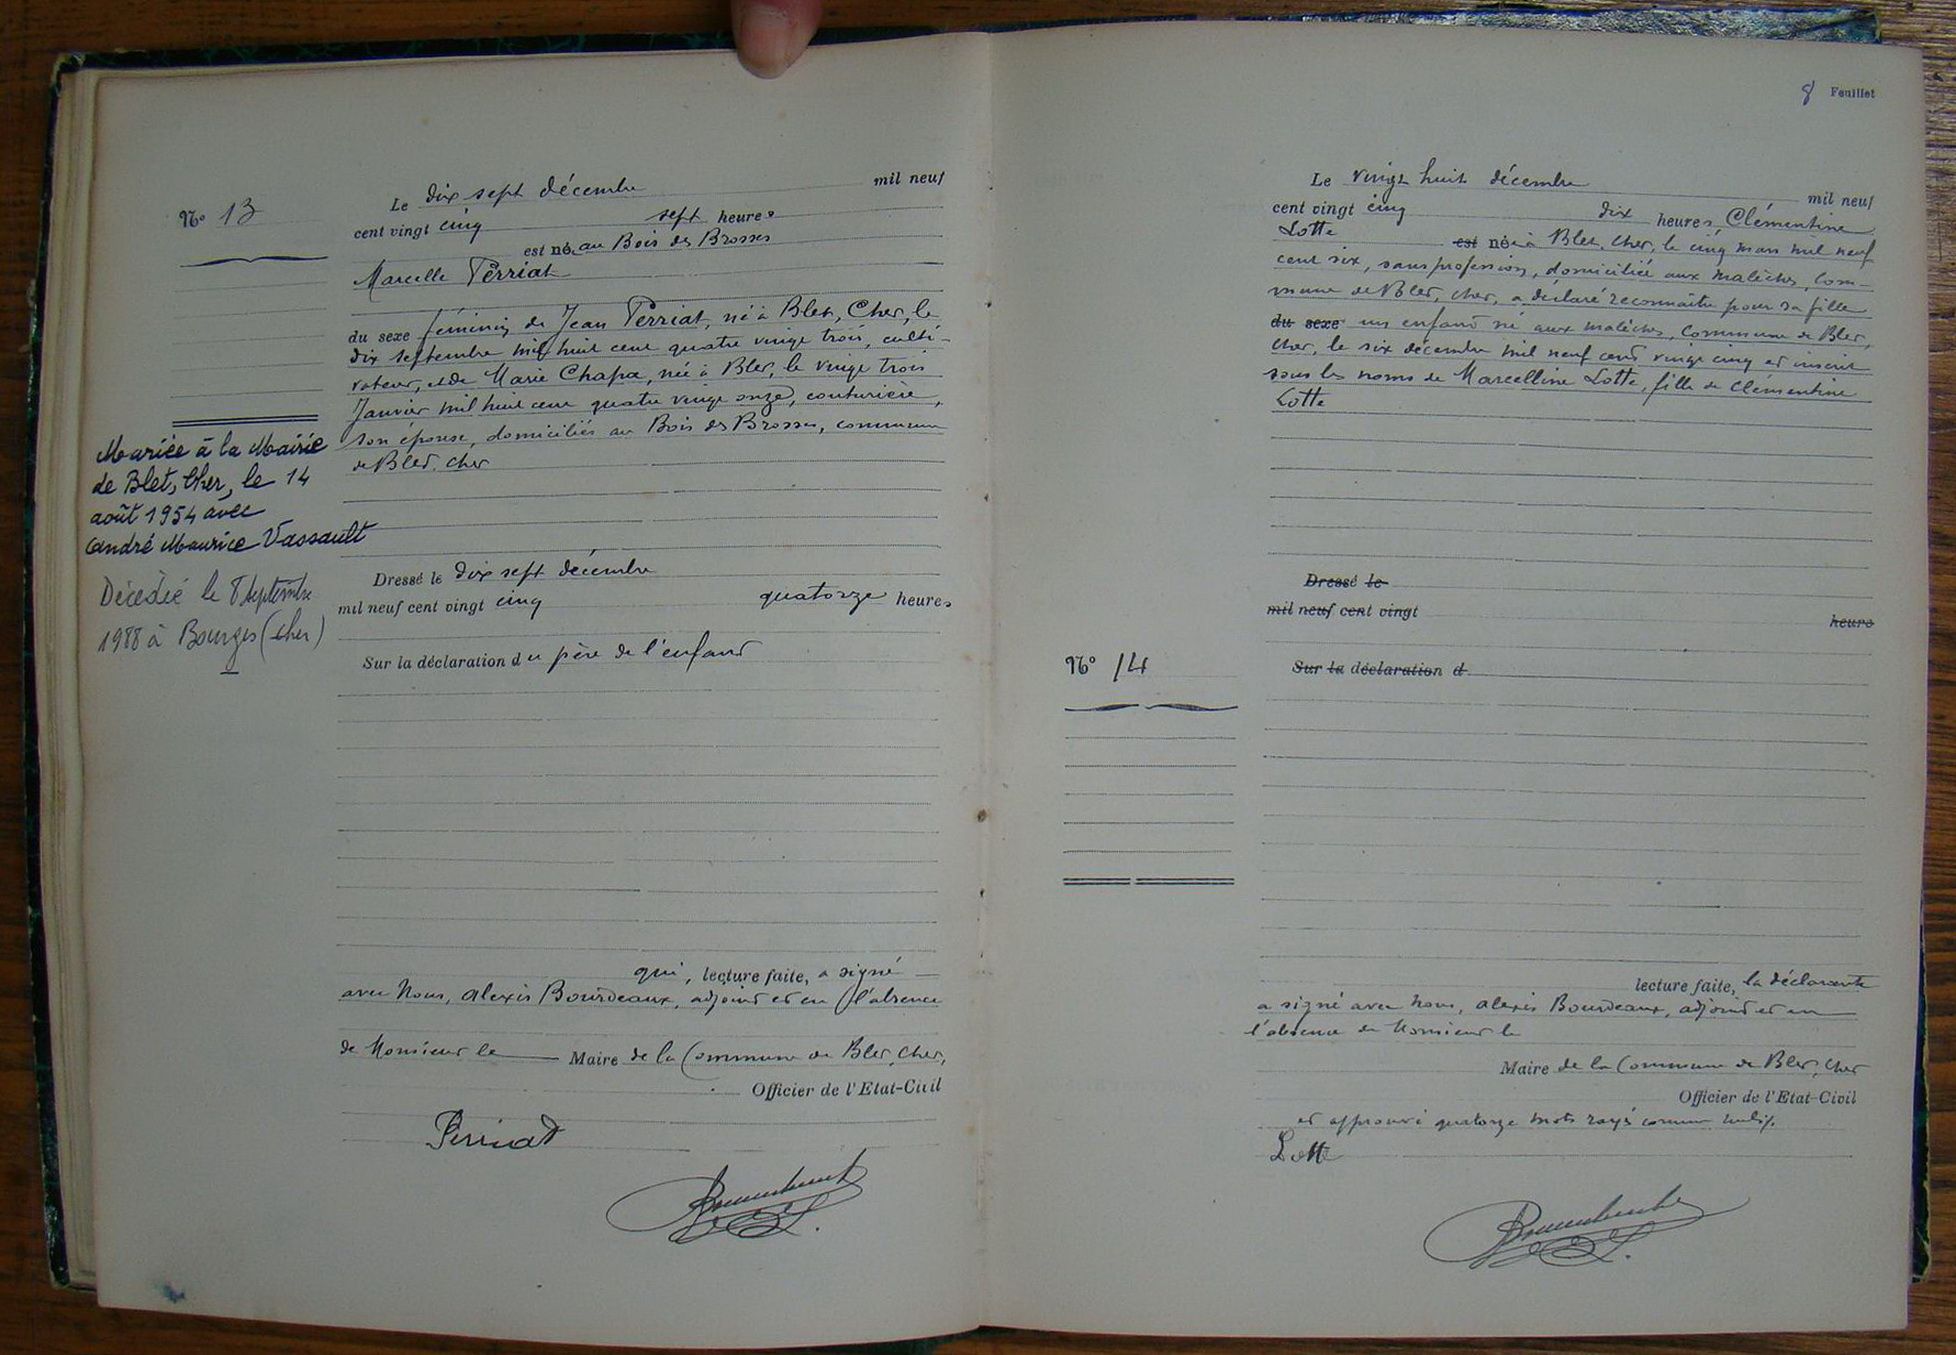 N° 13
Le dix sept décembre mil neuf
cent vingt cinq sept heures
est né, au Bois des Brosses
Marcelle Perriat
du sexe féminin de Jean Perriat, né à Blet, Cher, le
dix septembre mil huit cent quatre vingt trois, culti-
vateur, et de Marie Chapa, née à Blet, le vingt trois
Janvier mil huit cent quatre vingt onze, couturière,
son épouse, domiciliés au Bois des Brosses, commune
de Blet, Cher
Mariée à la Mairie
de Blet, Cher, le 14
août 1954 avec
André Maurice Vassault
Décédée le 8 septembre
1988 à Bourges (Cher)
Dressé le dix sept décembre
mil neuf cent vingt cinq quatorze heures
Sur la déclaration du père de l'enfant
qui, lecture faite, a signé
avec Nous, Alexis Bourdeaux, adjoint et en l'absence
de Monsieur le Maire de la Commune de Blet, Cher,
Officier de l'Etat-Civil
Perriat
8 Feuillet
Le vingt huit décembre mil neuf
cent vingt cinq dix heures, Clémentine
Lotte est née à Blet, Cher, le cinq mars mil neuf
cent six, sans profession, domiciliée aux Malèches, com-
mune de Blet, Cher, a déclaré reconnaître pour sa fille
du sexe un enfant né aux Malèches, commune de Blet,
Cher, le six décembre mil neuf cent vingt cinq et inscrit
sous les noms de Marcelline Lotte, fille de Clémentine
Lotte
Dressé le
mil neuf cent vingt heure
N° 14
Sur la déclaration d
lecture faite, la déclarante
a signé avec nous, Alexis Bourdeaux, adjoint et en
l'absence de Monsieur le
Maire de la Commune de Blet, Cher
Officier de l'Etat-Civil
et approuvé quatorze mots rayés comme nuls.
Lotte